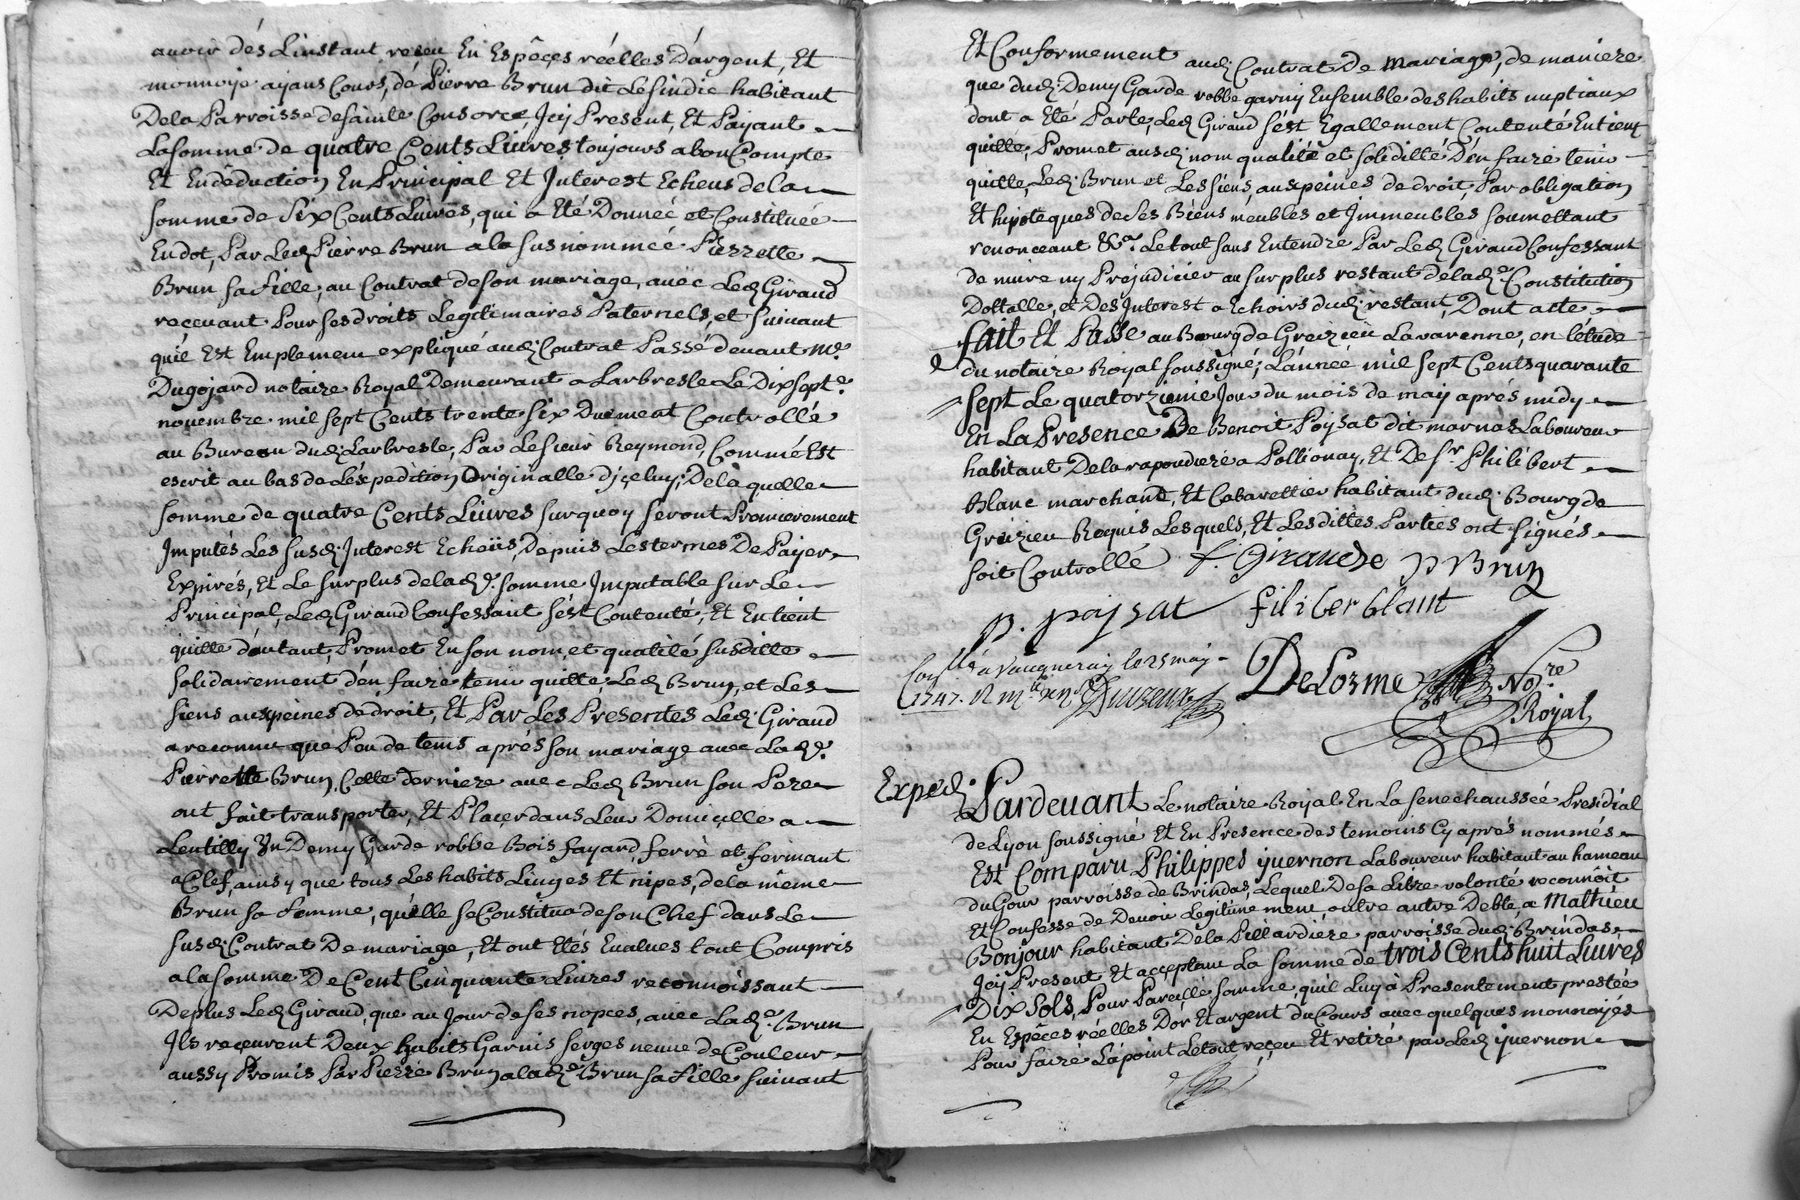 avoir dés L'instant reçeu En Espéçes réelles D'argent, Et
monnoye ayans Cours, dé Pierre Brun dit Lesindic habitant
De la Parroisse de sainte Consorce, Jcy Present, Et Payant
La somme de quatre Cents Livres toujours a bon Compte
Et En déduction En Principal Et Interest Echeus de la
somme de Six Cents Livres, qui a Eté Donneé et Constituée
En dot, Par Led. Pierre Brun a la susnommeé Pierrette
Brun sa fille, au Contrat de son mariage, avéc Led. Giraud
reçevant Pour ses droits Legitimaires Paternels, et suivant
qu'il Est Emplement expliqué aud. Contrat Passé devant Me.
Dugojard notaire Royal Demeurant a Larbresle Le Dix sept e.
novembre mil sept Cents trente six Duement Controllé
au Bureau dud. Larbresle, Par Le sieur Reymond, Commé Est
escrit au bas de L'éxpedition Originalle d'içeluy; De laquelle
somme de quatre Cents Livres sur quoy seront Premierement
Imputés Les susd. Interest Echeüs, Depuis Les termes De Payer
Expirés, Et Le surplus de lad. e. somme Imputable sur Le
Principal, Led. Giraud Confessant s'ést Contenté, Et En tient
quitte d'autant, Promet En son nom et qualité susditte
solidairement d'én faire tenir quitte Led. Brun, et Les
siens aux peines de droit, Et Par Les Presentes Led. Giraud
a reconnu que Peu de tems aprés son mariage avec Lad. e.
Pierrette Brun, Cette Derniere avec Led. Brun son Pere
ont fait transporter, Et Plaçer dans Leur Domicille a
Lentilly Un Demy Garde robbe Bois fayard, ferré et fermant
a Clef, ainsy que tous Les habits Linges Et nipes, de la méme
Brun sa femme, qu'elle se Constitua de son Chef dans Le
susd. Contrat De mariage, Et ont Etés Evalués tout Compris
a la somme De Cent Cinquante Livres reconnoissant
De plus Led. Giraud, que au Jour de ses nopces, avéc Lad. e. Brun
Ils reçeurent Deux habits Garnis serges neuve de Couleur
aussy Promis Par Pierre Brun a lad. e. Brun sa fille suivant
Et Conformement aud. Contrat De mariage, de maniere
que dud. Demy Garde robbe garny Ensemble des habits nuptiaux
dont a Eté Parlé, Led. Giraud s'ést Egallement Contenté En tient
quitte, Promet ausd. nom qualité et soliditté D'en faire tenir
quitte Led. Brun et Les siens aux peines de droit, Par obligation
Et hipoteques de ses Biens meubles et Jmmeubles soumettant
renonceant &a. Le tout sans Entendre Par Led. Giraud Confessant
de nuire ny Préjudicier au surplus restant de lad. e. Constitution
Dottalle, et Des Interest a Echoirs dud. restant, Dont acte
fait Et Passé au Bourg de Greizieu Lavarenne, en l'étude
du notaire Royal soussigné, L'année mil sept Cents quarante
sept Le quatorzieme Jour du mois de may aprés midy
En La Presence De Benoit Poysat dit marnas Laboureur
habitant De la rapoudiere a Pollionay, Et De sr. Philibert
Blanc marchand, Et Cabarettier habitant dud. Bourg de
Greizieu Requis Lesquels, Et Lesdittes Parties ont signés
soit Controllé f. Giraud P Brun
B. poysat filiber blant
Conllé. a Vaugneray le 25 may
1747. R DeLorme Nore.
Royal
Exped. Pardevant Le notaire Royal En La senechaussée Presidial
de Lyon soussigné Et En Presence des temoins Cy aprés nommés
Est Comparu Philippes yvernon Laboureur habitant au hameau
du Gour parroisse de Brindas, Lequel De sa Libre volonté reconnoit
Et Confesse de Devoir Legitimement outre autre Debte, a Mathieu
Bonjour habitant De la Pillardiére parroisse dud. Brindas
Jcy Present Et acceptant La somme de trois Cents huit Livres
Dix sols, Pour Pareille somme qu'il Luy à Presentement prestée
En Espéces réelles D'or Et argent du Cours avec quelques monnoyés
Pour faire L'apoint Le tout reçeu Et retiré par Led. yvernon